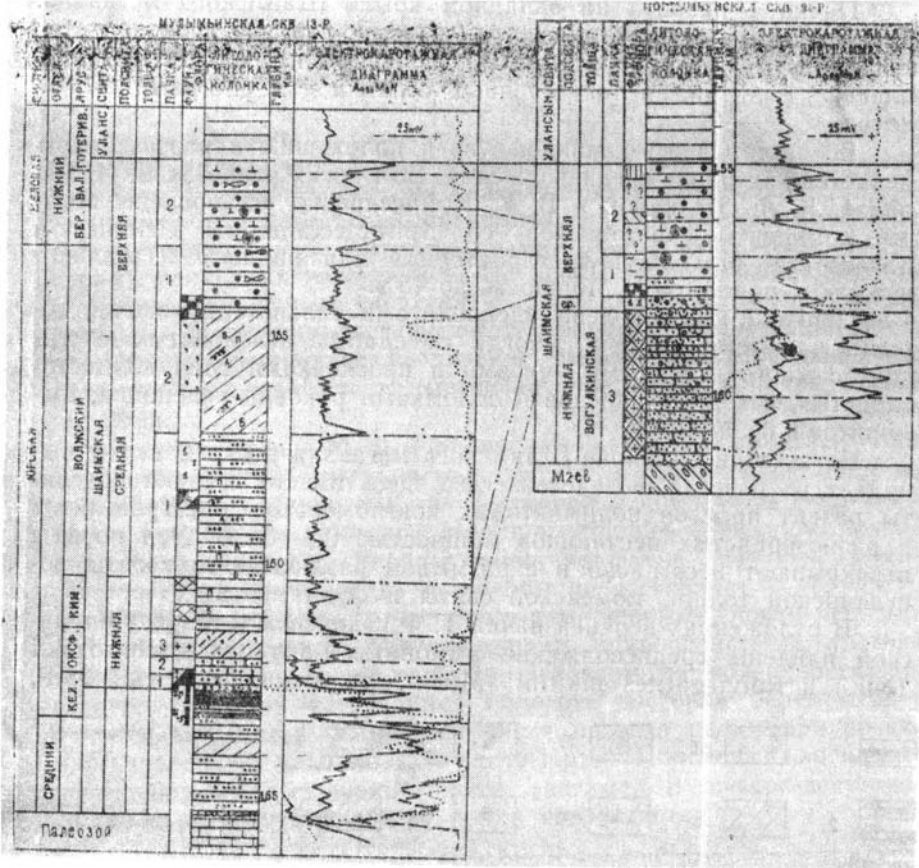 МУЗЫКЬИНСКАЯ СКВ 13-Р
СИСТЕМА
ОТДЕЛ
ЯРУС
СВИТА
ПОДСВИТА
ТОЛЩА
ПАЧКА
ЛИТОЛО-
ГИЧЕСКАЯ
КОЛОНКА
ГЛУБИНА
ЭЛЕКТРОКАРОТАЖНАЯ
ДИАГРАММА
25mV
МЕЛОВАЯ
НИЖНИЙ
БЕР.
ВАЛ.
ГОТЕРИВ.
УЛАНС
ВЕРХНЯЯ
2
4
2
155
ЮРСКАЯ
ВОЛЖСКИЙ
ШАИМСКАЯ
СРЕДНЯЯ
1
160
КИМ.
ОКСФ.
КЕЛ.
НИЖНЯЯ
3
2
1
СРЕДНИЙ
165
Палеозой
СКВ
СВИТА
ПОДСВИТА
ТОЛЩА
ПАЧКА
ЛИТОЛО-
ГИЧЕСКАЯ
КОЛОНКА
ЭЛЕКТРОКАРОТАЖНАЯ
ДИАГРАММА
25mV
УЛАНСЫН
155
ВЕРХНЯЯ
2
1
ШАИМСКАЯ
НИЖНЯЯ
ВОГУЛКИНСКАЯ
3
160